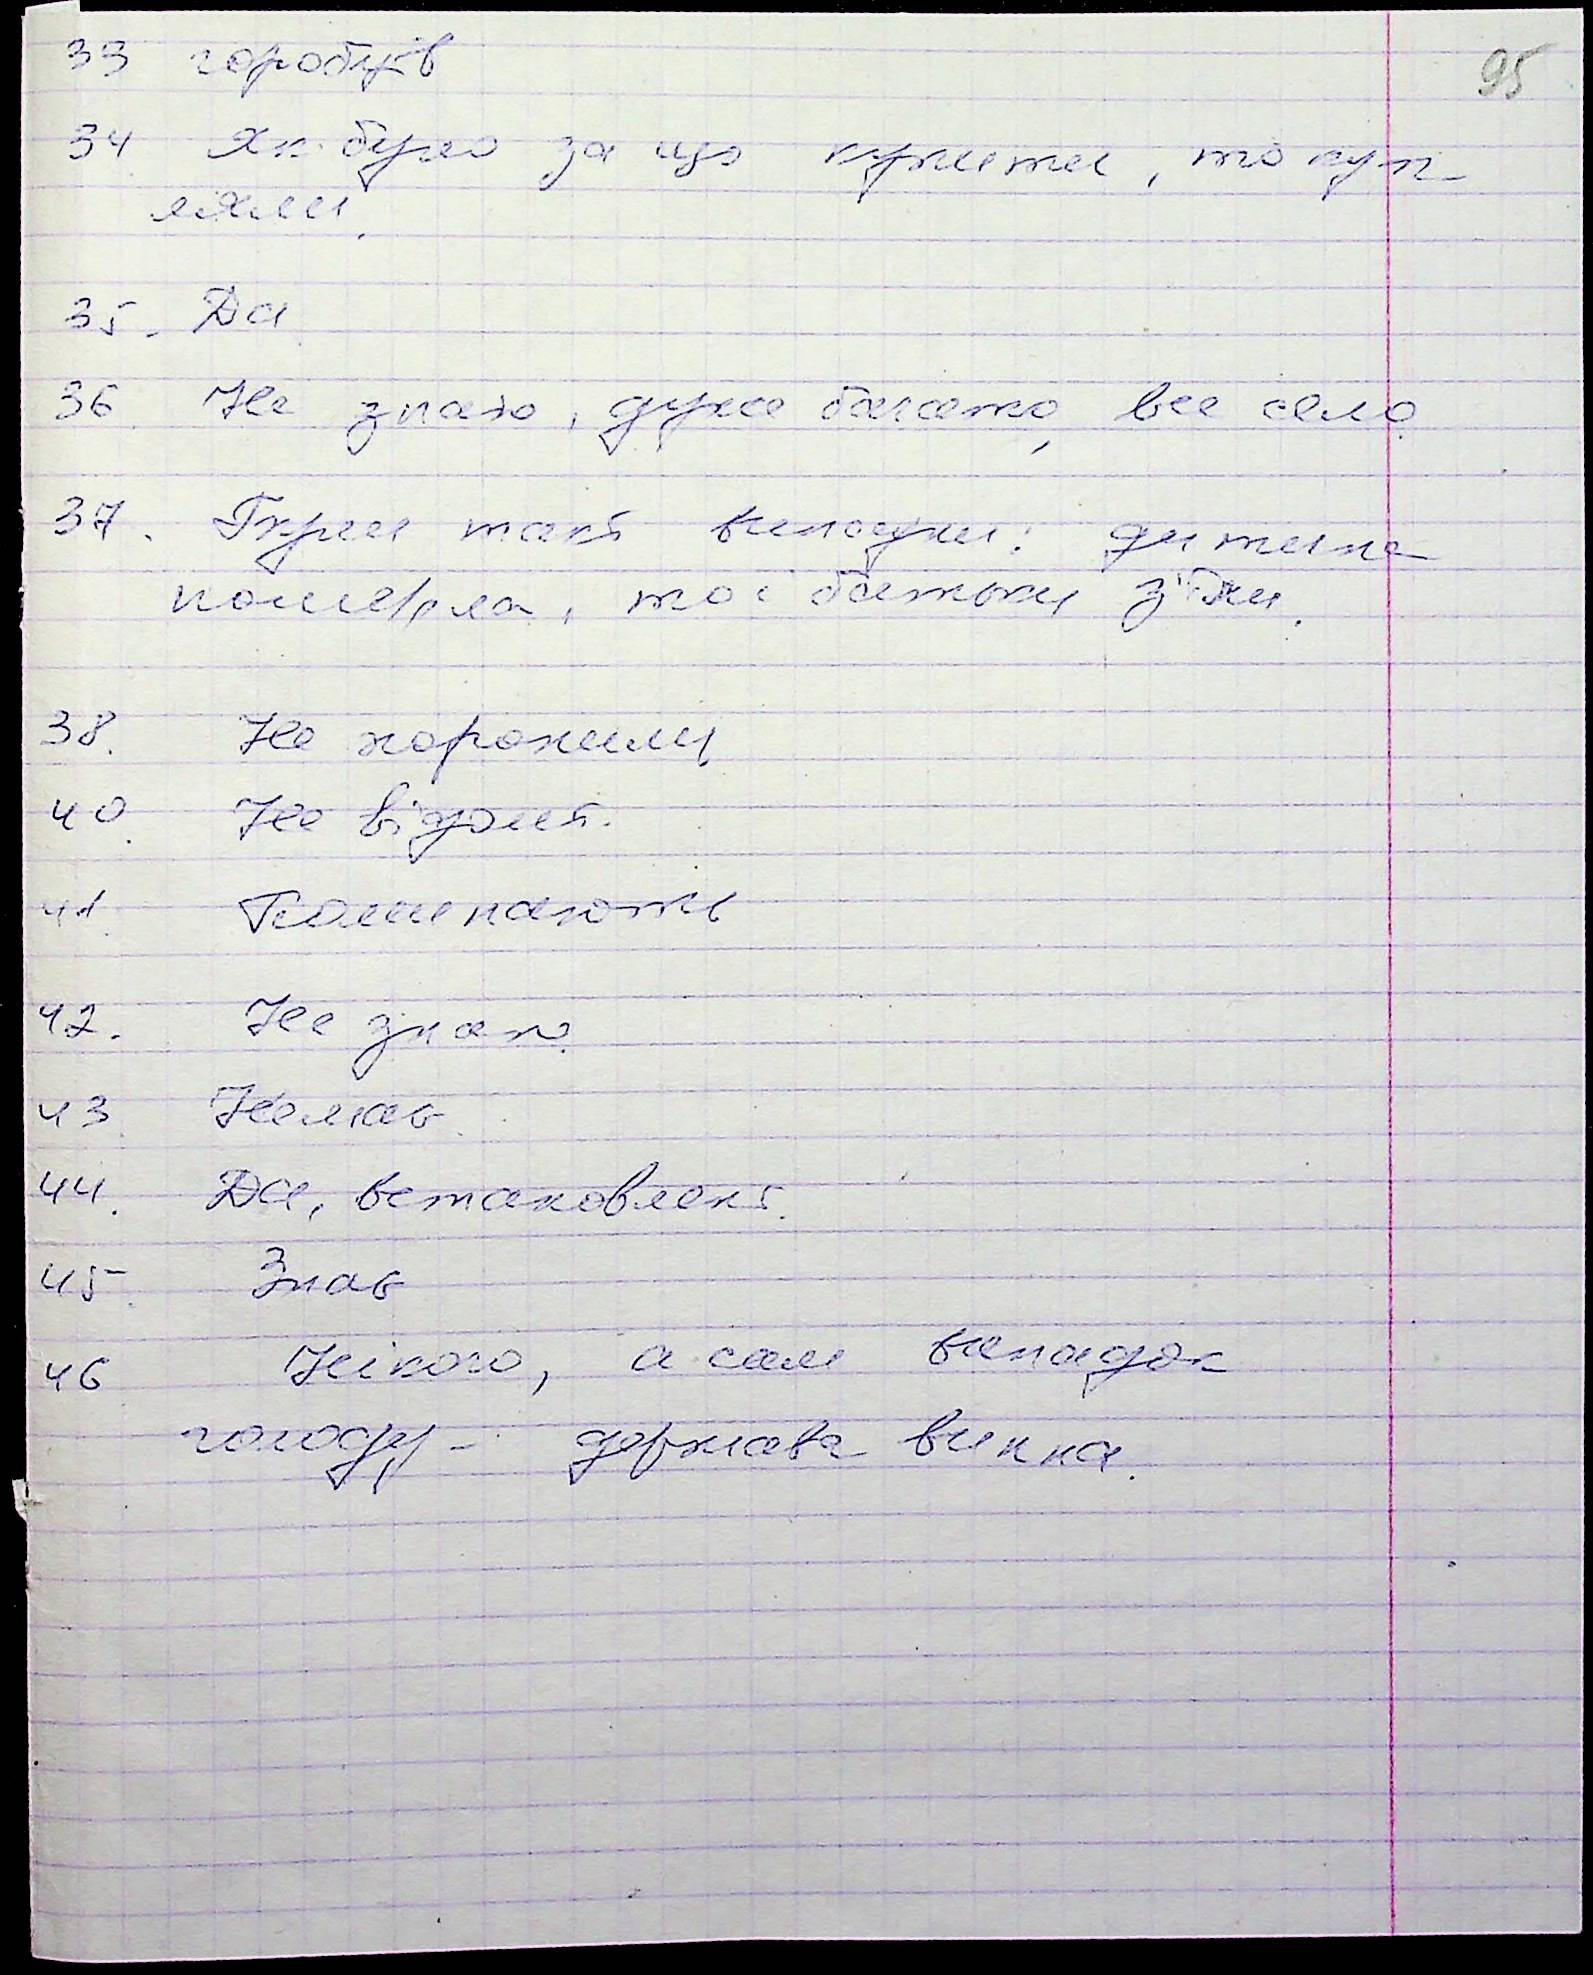 95
33 горобців
34 Як було за що купити, то куп-
ляли.
35. Да
36. Не знаю, дуже багато, все село.
37. Були такі випадки: дитина
померла, то і батьки з'їли.
38. Не хоронили
40. Не відомі.
41. Поминають
42. Не знаю.
43. Немає.
44. Да, встановлені.
45. Знав
46 Нікого, а сам випадок
голоду - держава винна.